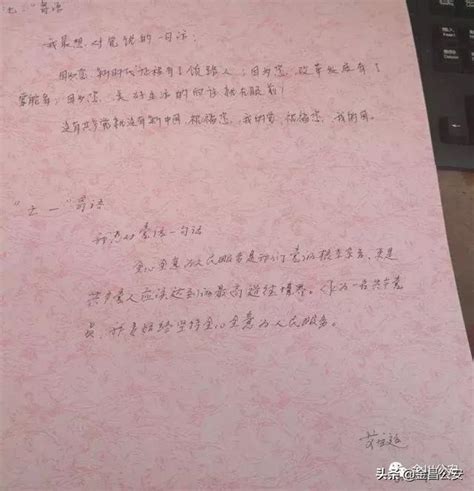 "七一"寄语
我最想对党说的一句话：
因为您，新时代征程有了领路人；因为您，改革发展有了
掌舵者；因为您，美好生活的向往就在眼前！
没有共产党就没有新中国，祝福您，我的党，祝福您，我的国。
"七一"寄语
我想对党说一句话
全心全意为人民服务是我们党的根本宗旨，更是
共产党人应该达到的最高道德境界。作为一名共产党
员，我要始终坚持全心全意为人民服务。
金昌公安
头条@金昌公安